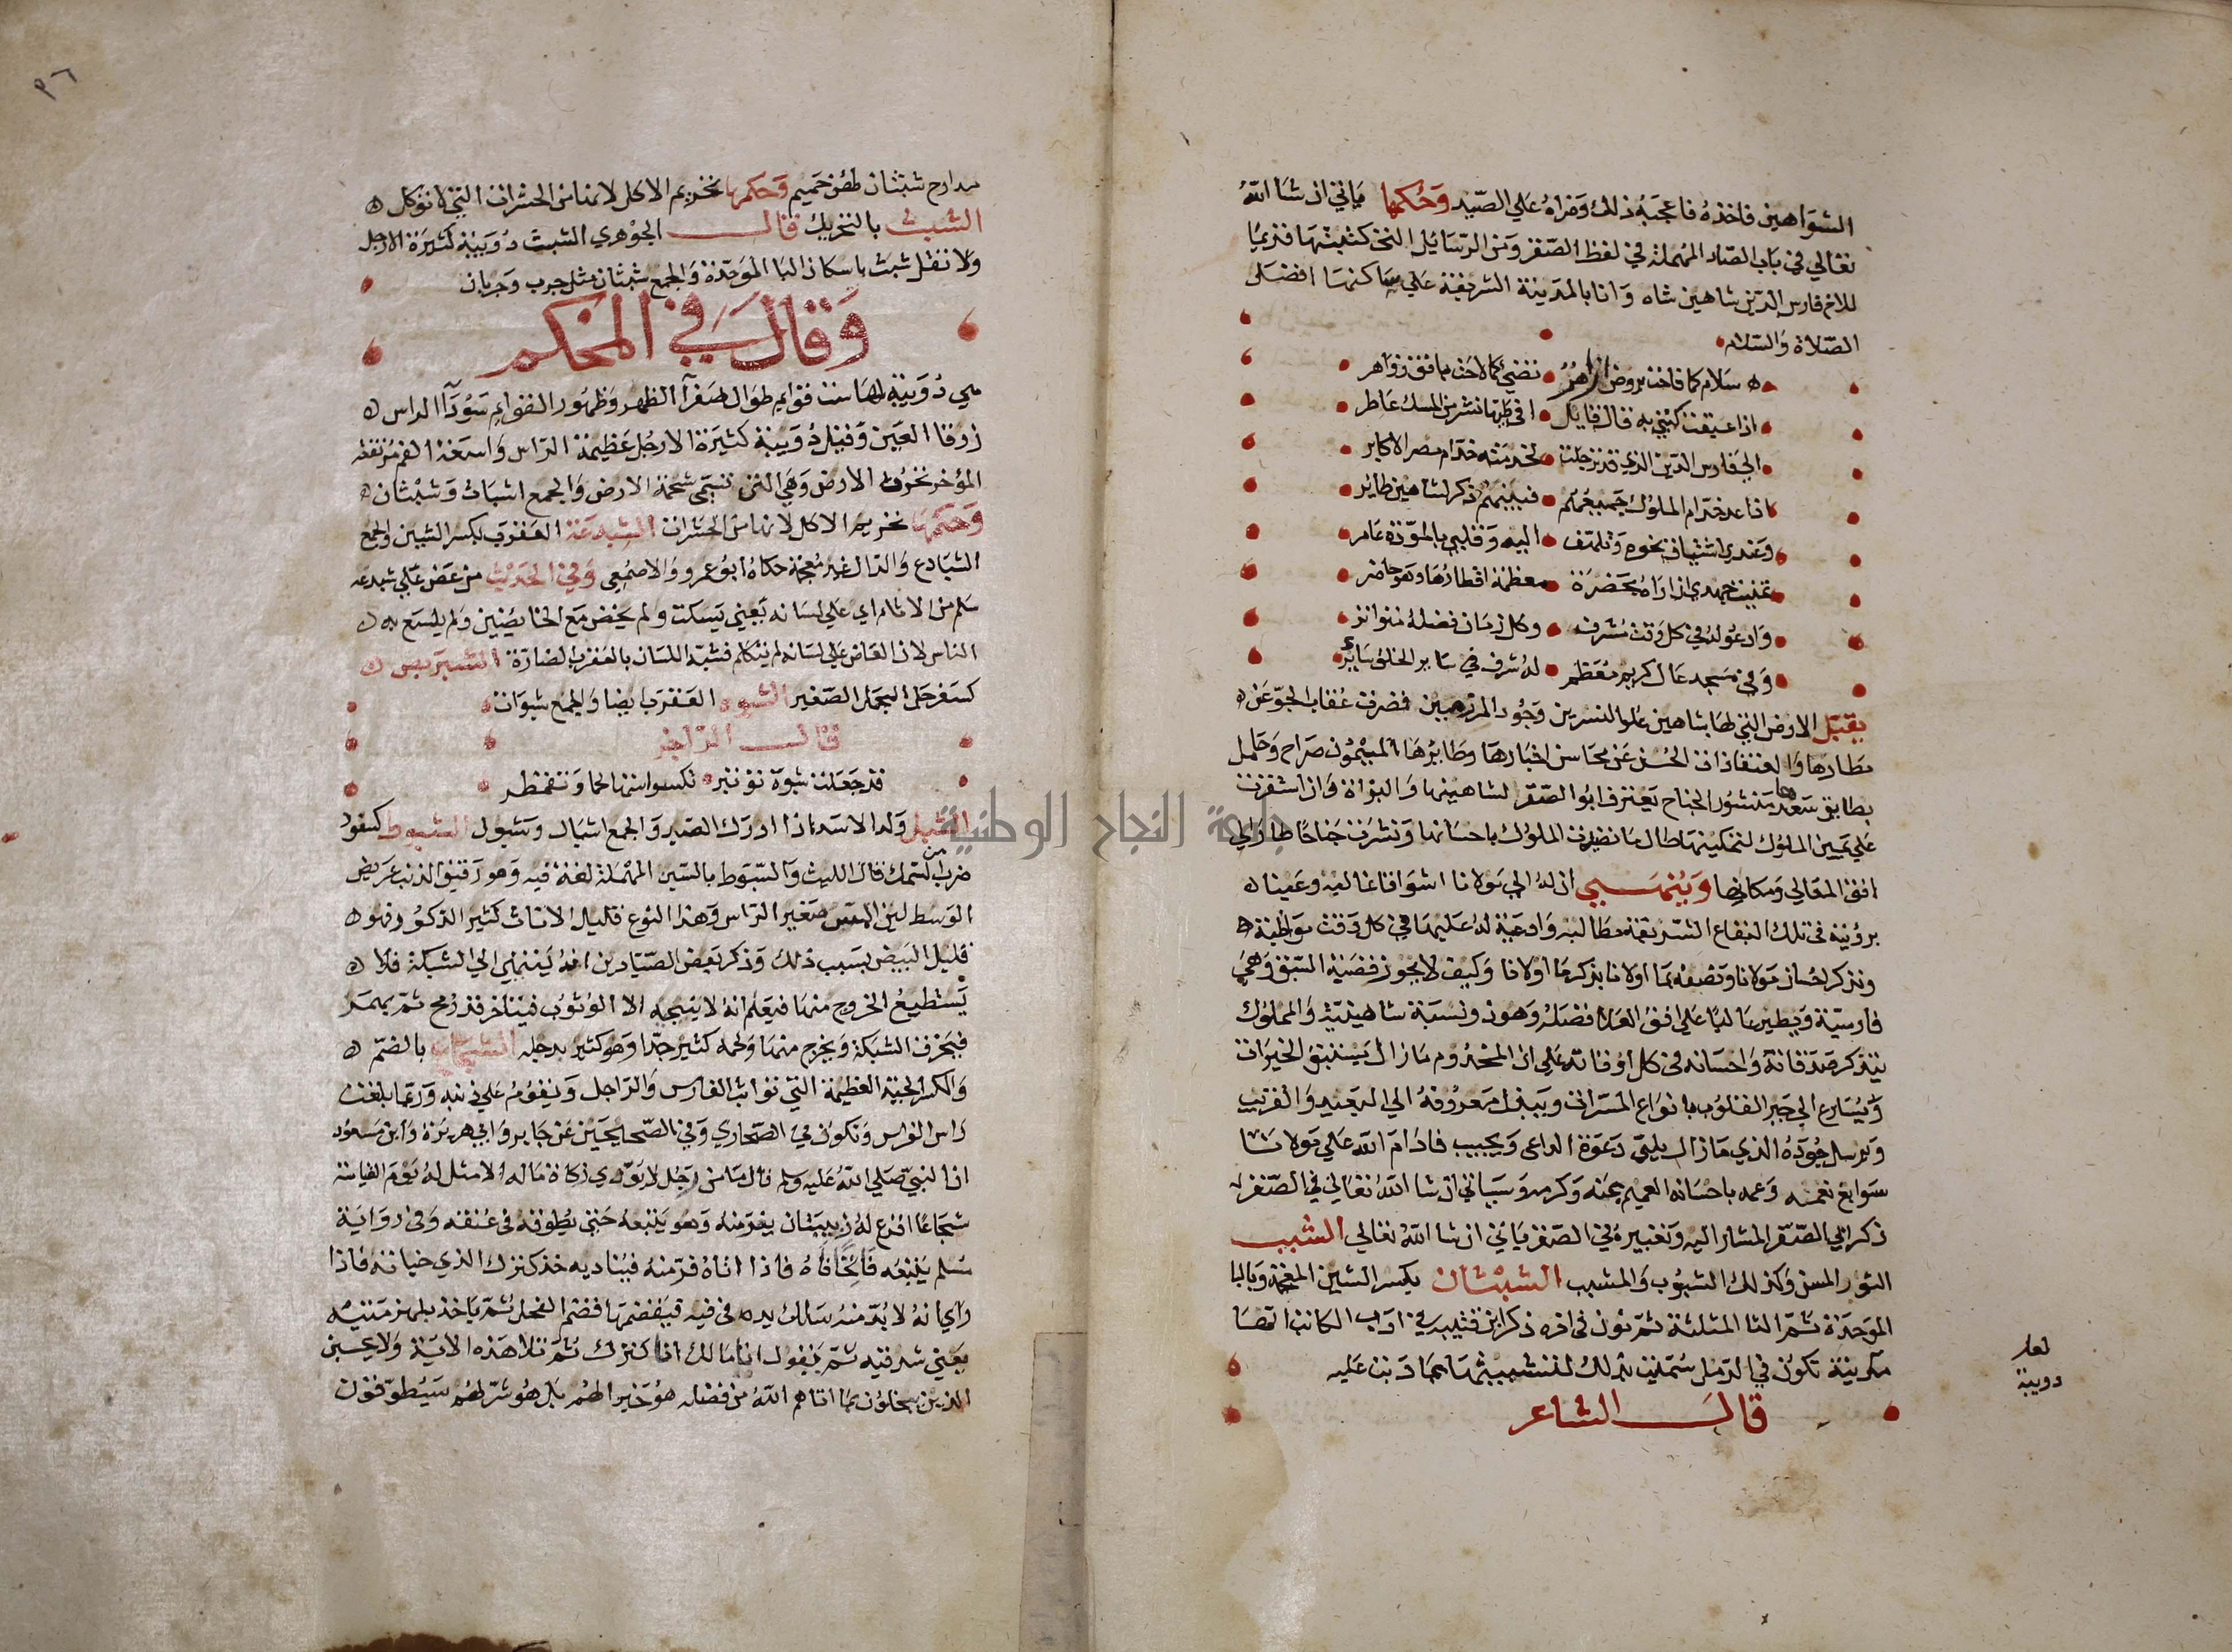 الشواهين فاخذه فاعجبه ذلك وضراه علي الصيد وحكمها ياتي ان شا الله
تعالي في باب الصاد المهملة في لفظ الصقر ومن الرسايل التي كتبتها قديما
للامير فارس الدين شاهين شاه وانا بالمدينة الشريفة علي ساكنها افضل
الصلاة والسلام
سلام كما فاحت بروض ازاهر تضي كما لاحت بافق زواهر
اذا عبقت كتبي به قال قايل افي طيها نشر من المسك عاطر
الي فارس الدين الذي قد ترحلت لخدمته خدام مصر الاكابر
اذا عد خدام الملوك جميعهم فبينهم ذكر لشاهين طاير
وعندي اشتياق نحوه وتلهف اليه وقلبي بالمودة عامر
تمنيت جهدي ان اراه بحضرة معظمة اقطارها وهو حاضر
وادعو له في كل وقت مشرف وكل زمان فضله متواتر
وفي مسجد عال كريم معظم له شرف في ساير الخلق ساير
يقبل الارض التي لها بشاهين علو النسرين وجود المرزمين فضرف عقاب الجو عن
مطارها والعنقا ذات الحسن عن محاسن اخبارها وطايرها الميمون صراح وحامل
بطايق سعدها منشور الجناح يعترف ابو الصقر لشاهينها والبزاة وان استقرت
علي يمين الملوك لتمكينها طال ما نظرت الملوك باحسانها ونشرت جناحا طار الي
افق المعالي ومكانها وينهي ان له الي مولانا اشواقا غالبه وعينا
برؤيته في تلك البقاع الشريفة مطالبه وادعية له عليها في كل وقت مواظبة
وتذكر احسان مولانا وتصفه بما اولانا بذكر ما اولانا وكيف لا يجوز قضية السبق وهي
فارسية ويطير عاليا علي افق العلا فضله وهو ذو نسبة شاهينية والمملوك
يتذكر صدقاته واحسانه في كل اوقاته علي ان المخدوم ما زال يستبق الخيرات
ويسارع الي جبر القلوب بانواع المسرات ويبذل معروفه الي البعيد والقريب
ويرسل جوده الذي ما زال يلبي دعوة الداعي ويجيب فادام الله علي مولانا
سوابغ نعمه وعمه باحسانه العميم بمنه وكرمه وسياتي ان شا الله تعالي في الصقر
ذكر ابي الصقر المشار اليه وتعبيره في الصقر ياتي ان شا الله تعالي الشبب
الثور المسن وكذلك الشبوب والمشبب الشبثان بكسر الشين المعجمة وبالبا
الموحدة ثم الثا المثلثة ثم نون في اخره ذكر ابن قتيبة في ادب الكاتب انها
دويبة تكون في الرمل سميت بذلك لتشبثها بما دبت عليه
لعله
دويبة
قال الشاعر
٩٦
مدارج شبثان لهن هميم وحكمها تحريم الاكل لانها من الحشرات التي لا توكل
الشبث بالتحريك قال الجوهري الشبث دويبة كثيرة الارجل
ولا تقل شبث باسكان البا الموحدة والجمع شبثان مثل خرب وخربان
وقال في المحكم
هي دويبة لها ست قوايم طوال صفرآ الظهر وظهور القوايم سودآ الراس
زرقا العين وقيل دويبة كثيرة الارجل عظيمة الراس واسعة الفم مرتفعة
المؤخر تخرب الارض وهي التي تسمي شحمة الارض والجمع اشباث وشبثان
وحكمها تحريم الاكل لانها من الحشرات الشبدعة العقرب بكسر الشين والجمع
الشبادع والدال غير معجمة حكاه ابو عمرو والاصمعي وفي الحديث من عض علي شبدعه
سلم من الاثام اي علي لسانه يعني يسكت ولم يخض مع الخايضين ولم يلسع به
الناس لان العاض علي لسانه لم يتكلم فشبه اللسان بالعقرب الضارة الشبربص
كسفرجل الجمل الصغير الشبوه العقرب ايضا والجمع شبوات
قال الراجز
قد جعلت شبوة تزبئر تكسوا استها لحما وتقمطر
الشبل ولد الاسد اذا ادرك الصيد والجمع اشبال وشبول الشبوط كسفود
ضرب من السمك قال الليث والسبوط بالسين المهملة لغة فيه وهو رقيق الذنب عريض
الوسط لين المس صغير الراس وهذا النوع قليل الاناث كثير الذكور فهو
قليل البيض بسبب ذلك وذكر بعض الصيادين انه ينتهي الي الشبكة فلا
يستطيع الخروج منها فيعلم انه لا ينجيه الا الوثوب فيتاخر قدر رمح ثم يهمز
فيخرق الشبكة ويخرج منها ولحمه كثير جدا وهو كثير بدجله الشجاع بالضم
والكسر الحية العظيمة التي تواثب الفارس والراجل ويقوم علي ذنبه وربما بلغت
راس الفارس وتكون في الصحاري وفي الصحيحين عن جابر وابي هريرة وابن مسعود
ان النبي صلي الله عليه وسلم قال ما من رجل لا يؤدي زكاة ماله الا مثل له يوم القيامة
شجاعا اقرع له زبيبتان يفر منه وهو يتبعه حتي يطوقه في عنقه وفي رواية
مسلم يتبعه فاتحا فاه فاذا اتاه فر منه فيناديه خذ كنزك الذي خباته فاذا
راي انه لا بد منه سلك يده في فيه فيقضمها قضم الفحل ثم ياخذ بلهزمتيه
يعني شدقيه ثم يقول انا مالك انا كنزك ثم تلا هذه الاية ولا يحسبن
الذين يبخلون بما اتاهم الله من فضله هو خيرا لهم بل هو شر لهم سيطوقون
جامعة النجاح الوطنية